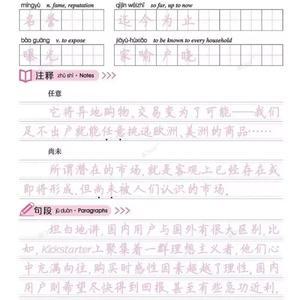 míngyù n. fame, reputation qìjīn wéizhǐ so far, up to now
名誉 迄今为止
bào guāng v. to expose jiāyù-hùxiǎo to be known to every household
曝光 家喻户晓
注释 zhù shì · Notes
任意
它将异地购物、交易变为了可能——我们
足不出户就能任意挑选欧洲、美洲的商品……
尚未
所谓潜在的市场，就是客观上已经存在或
即将形成，但尚未被人们认识的市场。
句段 jù duàn · Paragraphs
坦白地讲，国内用户与国外有很大区别。比
如，Kickstarter上聚集着一群理想主义者，他们心
中充满向往，购买时感性因素超越了理性。国内
用户则希望尽快得到回报，甚至有些急功近利，